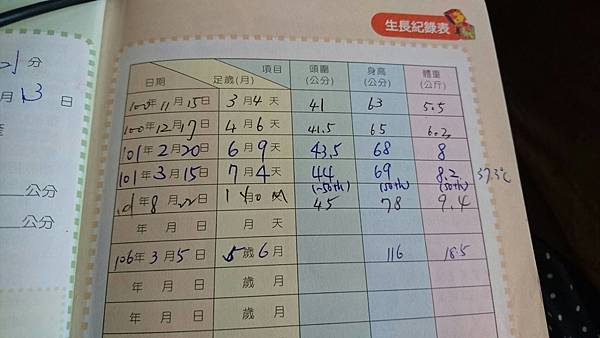 生長紀錄表
分
月 13 日
公分
公分
日期 足歲(月) 項目 頭圍(公分) 身高(公分) 體重(公斤)
100年11月15日 3月4天 41 63 5.5
100年12月17日 4月6天 41.5 65 6.2
101年2月20日 6月9天 43.5 68 8
101年3月15日 7月4天 44 69 8.2 37.3℃
(~50th) (50th) (50th)
101年8月22日 45 78 9.4
年 月 日 月 天
106年3月5日 5歲6月 116 18.5
年 月 日 歲 月
年 月 日 歲 月